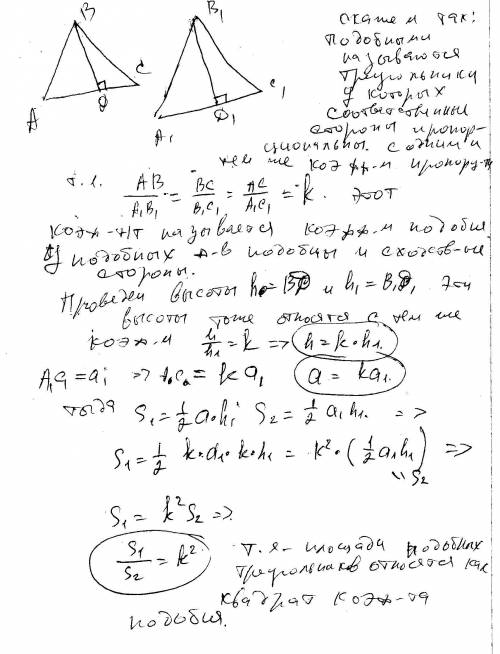 B
B₁
A
D
C
A₁
D₁
C₁
скажем так:
подобными
называются
треугольники
у которых
соответственные
стороны пропор-
циональны с одним и
тем же коэфф-м пропорц-и
т.е. AB/A₁B₁ = BC/B₁C₁ = AC/A₁C₁ = k. этот
коэф-нт называется коэфф-м подобия
у подобных Δ-в подобны и сходств-ые
стороны.
Проведем высоты h = BD и h₁ = B₁D₁ Эти
высоты тоже относятся с тем же
коэф.м h/h₁ = k => h = k·h₁.
A₁C₁ = a₁ => = ka₁ a = ka₁.
тогда S₁ = ½ a·h; S₂ = ½ a₁h₁. =>
S₁ = ½ k·a₁·k·h₁ = k²·(½a₁h₁) =>
"S₂
S₁ = k²S₂ =>
S₁/S₂ = k². т.е. площади подобных
треугольников относятся как
квадрат коэф-та
подобия.